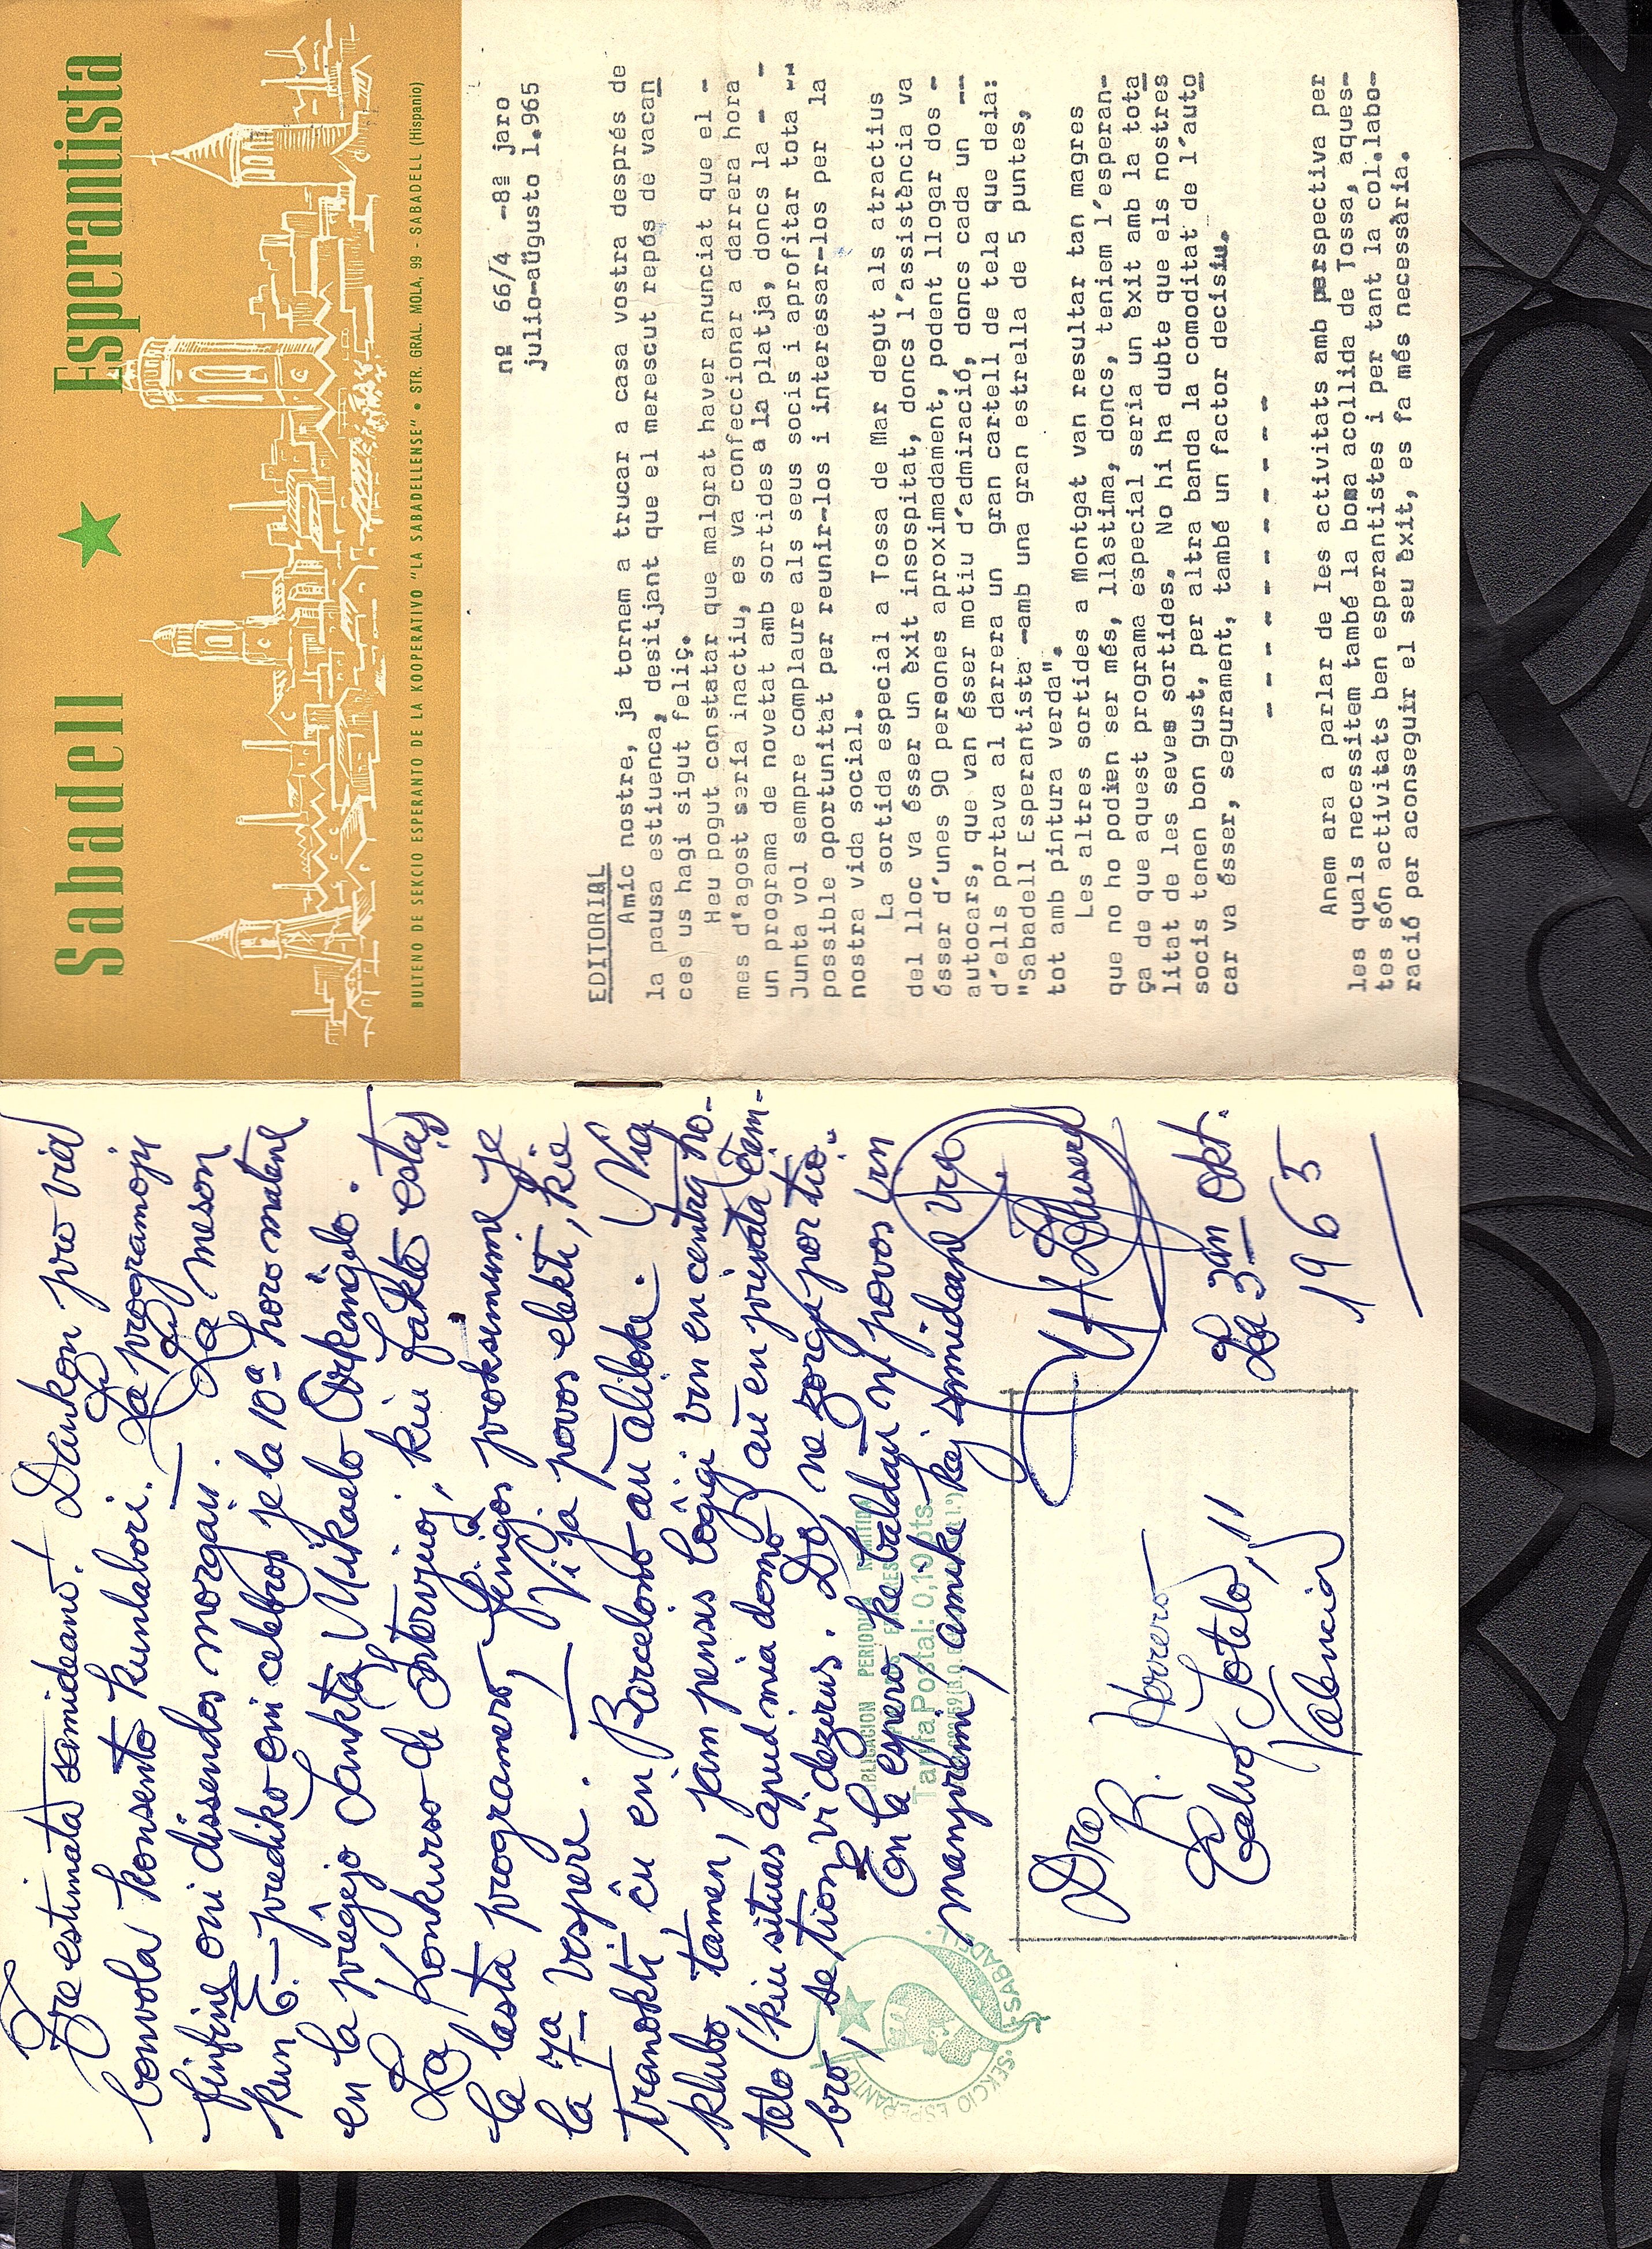 Tre estimata samideano! Dankon pro via
bonvola konsento kunlabori. La programojn
finfine oni dissendos morgaŭ. — La meson
kun E.- prediko oni celebros je la 10ª horo matene
en la preĝejo Sankta Mikaelo Arkanĝelo.
La Konkurso de Intervjuoj, kiu fakte estas
la lasta programero, finiĝos proksimume je
la 7a vespere. — Vi ja povos elekti, kie
tranokti ĉu en Barcelono aŭ aliloke. Nia
klubo tamen, jam pensis loĝigi vin en centra ho-
telo (kiu situas apud mia domo) aŭ en privata ĉam-
bro, se tion vi deziras. Do, ne zorgu por tio.
En la espero, ke baldaŭ ni povos vin
manpremi, amike kaj samideane via
La 3an Okt.
1965
Dro
R. Herrero
Calvo Sotelo, 11
Valencia
PUBLICACION PERIODICA
Tarifa Postal: 0,10 pts.
SEKCIO ESPERANTO
SABADELL
Sabadell ★ Esperantista
BULTENO DE SEKCIO ESPERANTO DE LA KOOPERATIVO "LA SABADELLENSE" • STR. GRAL. MOLA, 99 - SABADELL (Hispanio)
nº 66/4 -8ª jaro
julio-aŭgusto 1.965
EDITORIAL
Amic nostre, ja tornem a trucar a casa vostra després de
la pausa estiuenca, desitjant que el merescut repós de vacan
ces us hagi sigut feliç.
Heu pogut constatar que malgrat haver anunciat que el -
mes d'agost seria inactiu, es va confeccionar a darrera hora
un programa de novetat amb sortides a la platja, doncs la - -
Junta vol sempre complaure als seus socis i aprofitar tota --
possible oportunitat per reunir-los i interessar-los per la
nostra vida social.
La sortida especial a Tossa de Mar degut als atractius
del lloc va ésser un èxit insospitat, doncs l'assistència va
ésser d'unes 90 persones aproximadament, podent llogar dos -
autocars, que van ésser motiu d'admiració, doncs cada un --
d'ells portava al darrera un gran cartell de tela que deia:
"Sabadell Esperantista -amb una gran estrella de 5 puntes,
tot amb pintura verda".
Les altres sortides a Montgat van resultar tan magres
que no ho podien ser més, llàstima, doncs, teniem l'esperan-
ça de que aquest programa especial seria un èxit amb la tota
litat de les seves sortides. No hi ha dubte que els nostres
socis tenen bon gust, per altra banda la comoditat de l'auto
car va ésser, segurament, també un factor decisiu.
- - - - - - - - - - -
Anem ara a parlar de les activitats amb perspectiva per
les quals necessitem també la bona acollida de Tossa, aques-
tes són activitats ben esperantistes i per tant la col.labo-
ració per aconseguir el seu èxit, es fa més necessària.